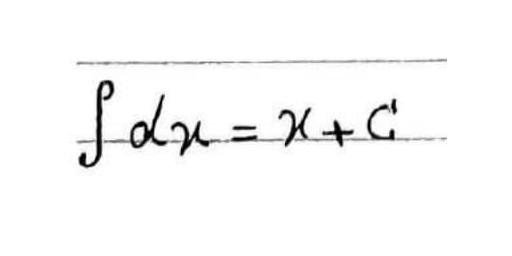 ∫dx = x + C